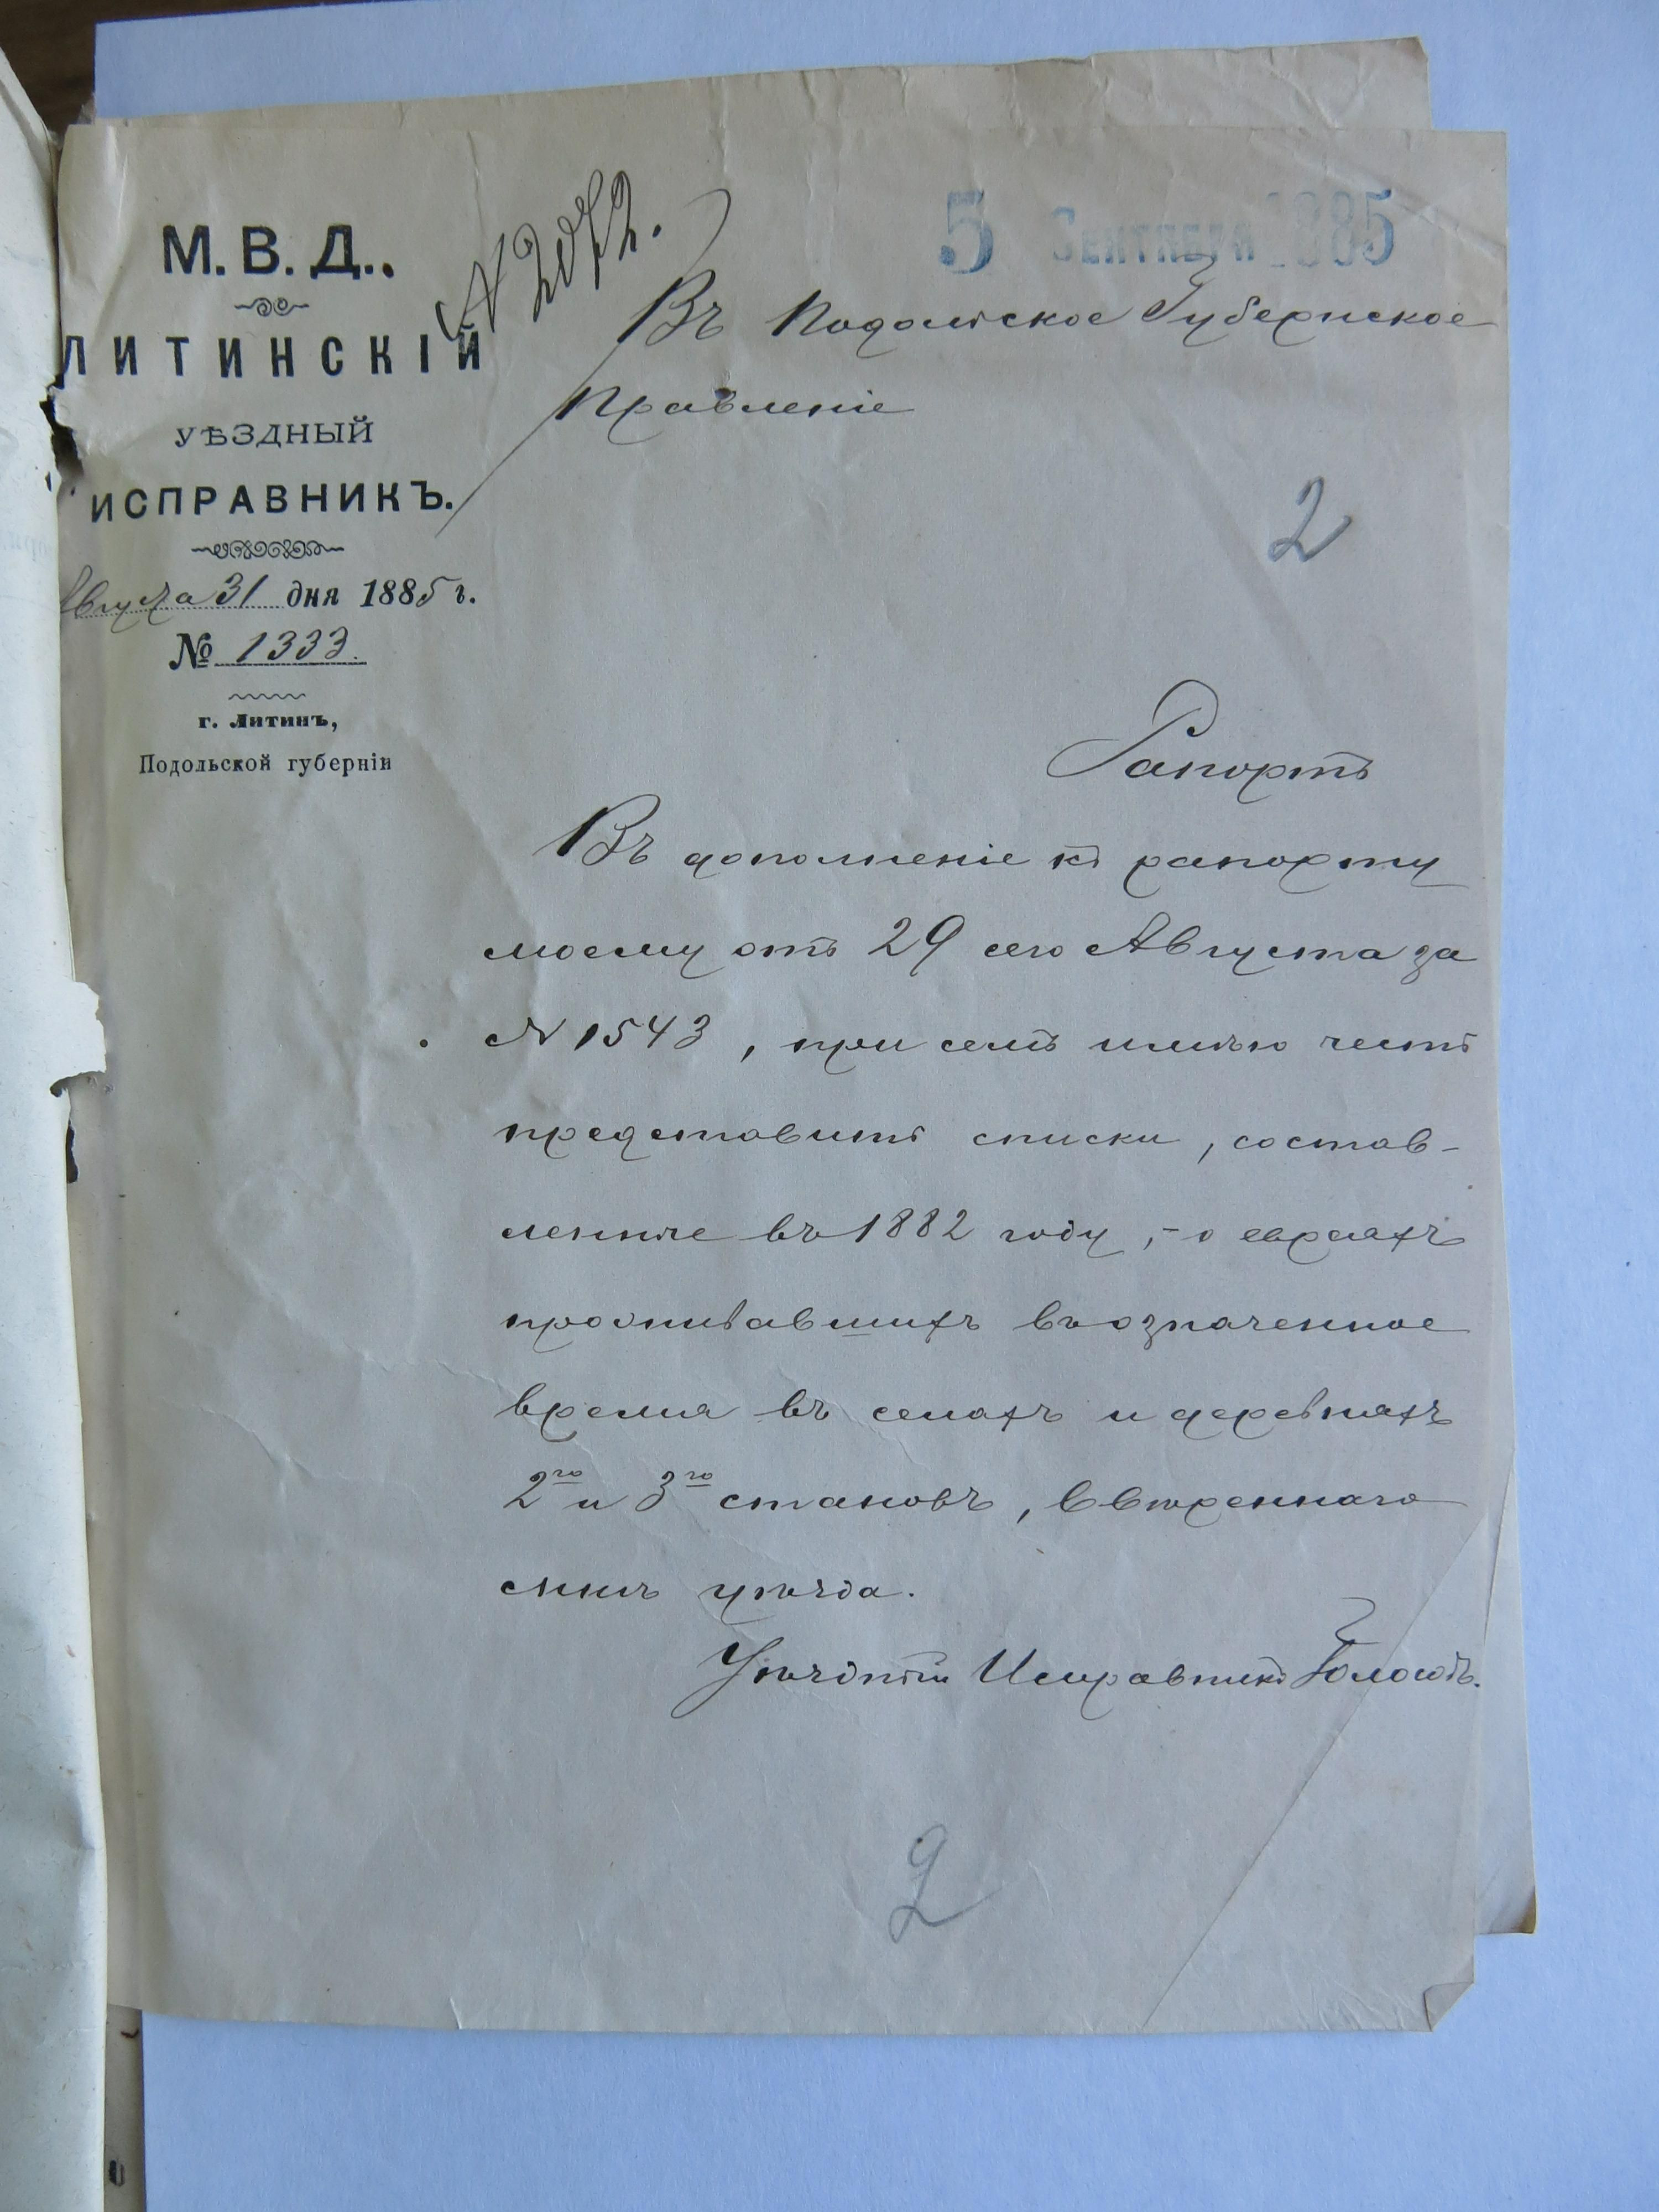 М. В. Д.
ЛИТИНСКІЙ
УѢЗДНЫЙ
ИСПРАВНИКЪ.
Августа 31 дня 1885 г.
№ 1333.
г. Литинъ,
Подольской губерніи
N 2072.
5 Сентября 1885
Въ Подольское Губернское
Правленіе
2
Рапортъ
Въ дополненіе къ рапорту
моему отъ 29 сего Августа за
N 1543, при семъ имѣю честь
представить списки, состав-
ленные въ 1882 году, - о евреяхъ
проживавшихъ въ означенное
время въ селахъ и деревняхъ
2го и 3го становъ, ввѣреннаго
мнѣ уѣзда.
Уѣздный Исправникъ
2